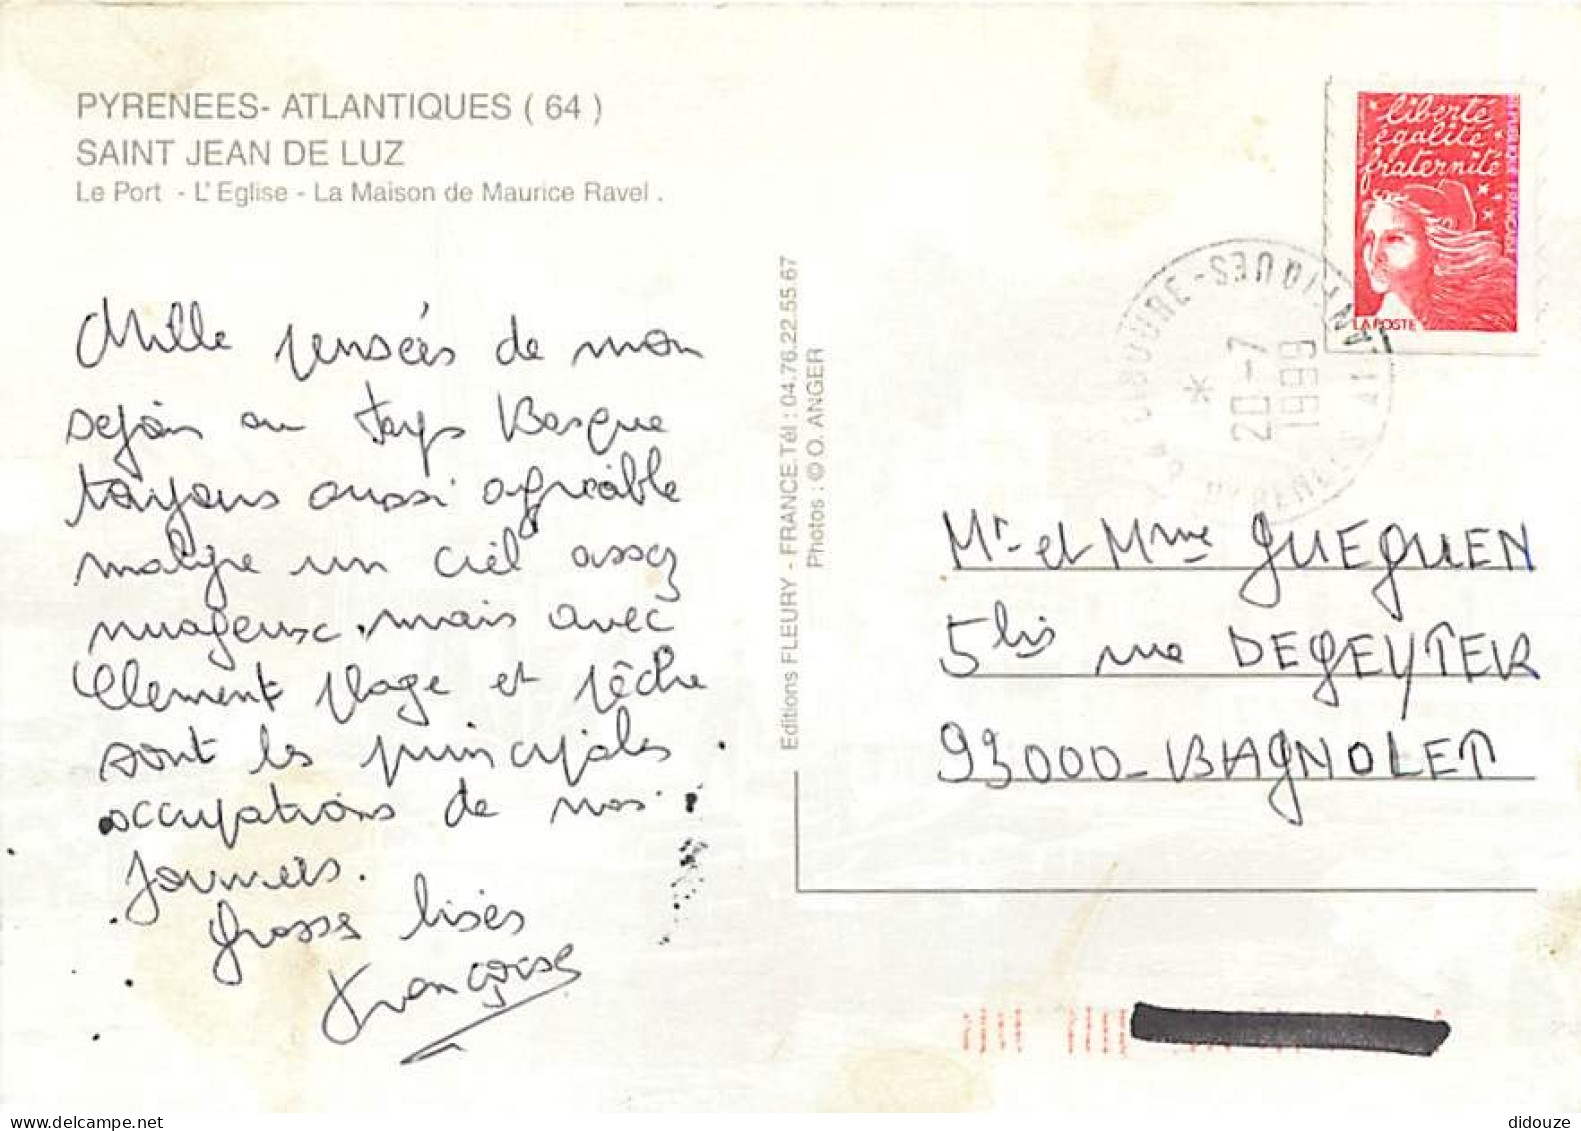 PYRENEES- ATLANTIQUES ( 64 )
SAINT JEAN DE LUZ
Le Port - L'Eglise - La Maison de Maurice Ravel .
Mille pensées de mon
sejour au Pays Basque
toujours aussi agréable
malgre un ciel assez
nuageux. mais avec
Clement plage et pêche
sont les principales
occupations de nos
journées.
Grosses bises
Françoise
Editions FLEURY - FRANCE.Tél : 04.76.22.55.67
Photos : © O. ANGER
liberté
égalité
fraternité
LA POSTE
CIBOURE - PYRENEES ATLANTIQUES
20-7
1999
*
Mr et Mme GUEGUEN
5 bis rue DEGEYTER
93000 - BAGNOLET
didouze